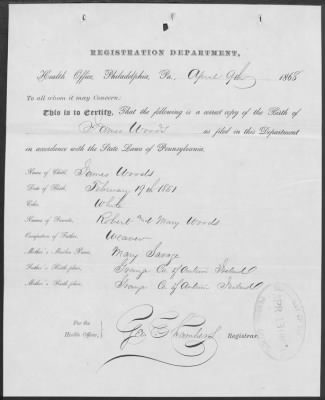 REGISTRATION DEPARTMENT,
Health Office, Philadelphia, Pa., April 9th 1868
To all whom it may Concern:
This is to Certify, That the following is a correct copy of the Birth of
James Woods as filed in this Department
in accordance with the State Laws of Pennsylvania.
Name of Child, James Woods
Date of Birth, February 19th 1861
Color, White
Names of Parents, Robert and Mary Woods
Occupation of Father, Weaver
Mother's Maiden Name, Mary Savage
Father's Birth-place, Co of Antrim Ireland
Mother's Birth-place, Co of Antrim Ireland
For the
Health Officer,
Geo E Chambers Registrar.